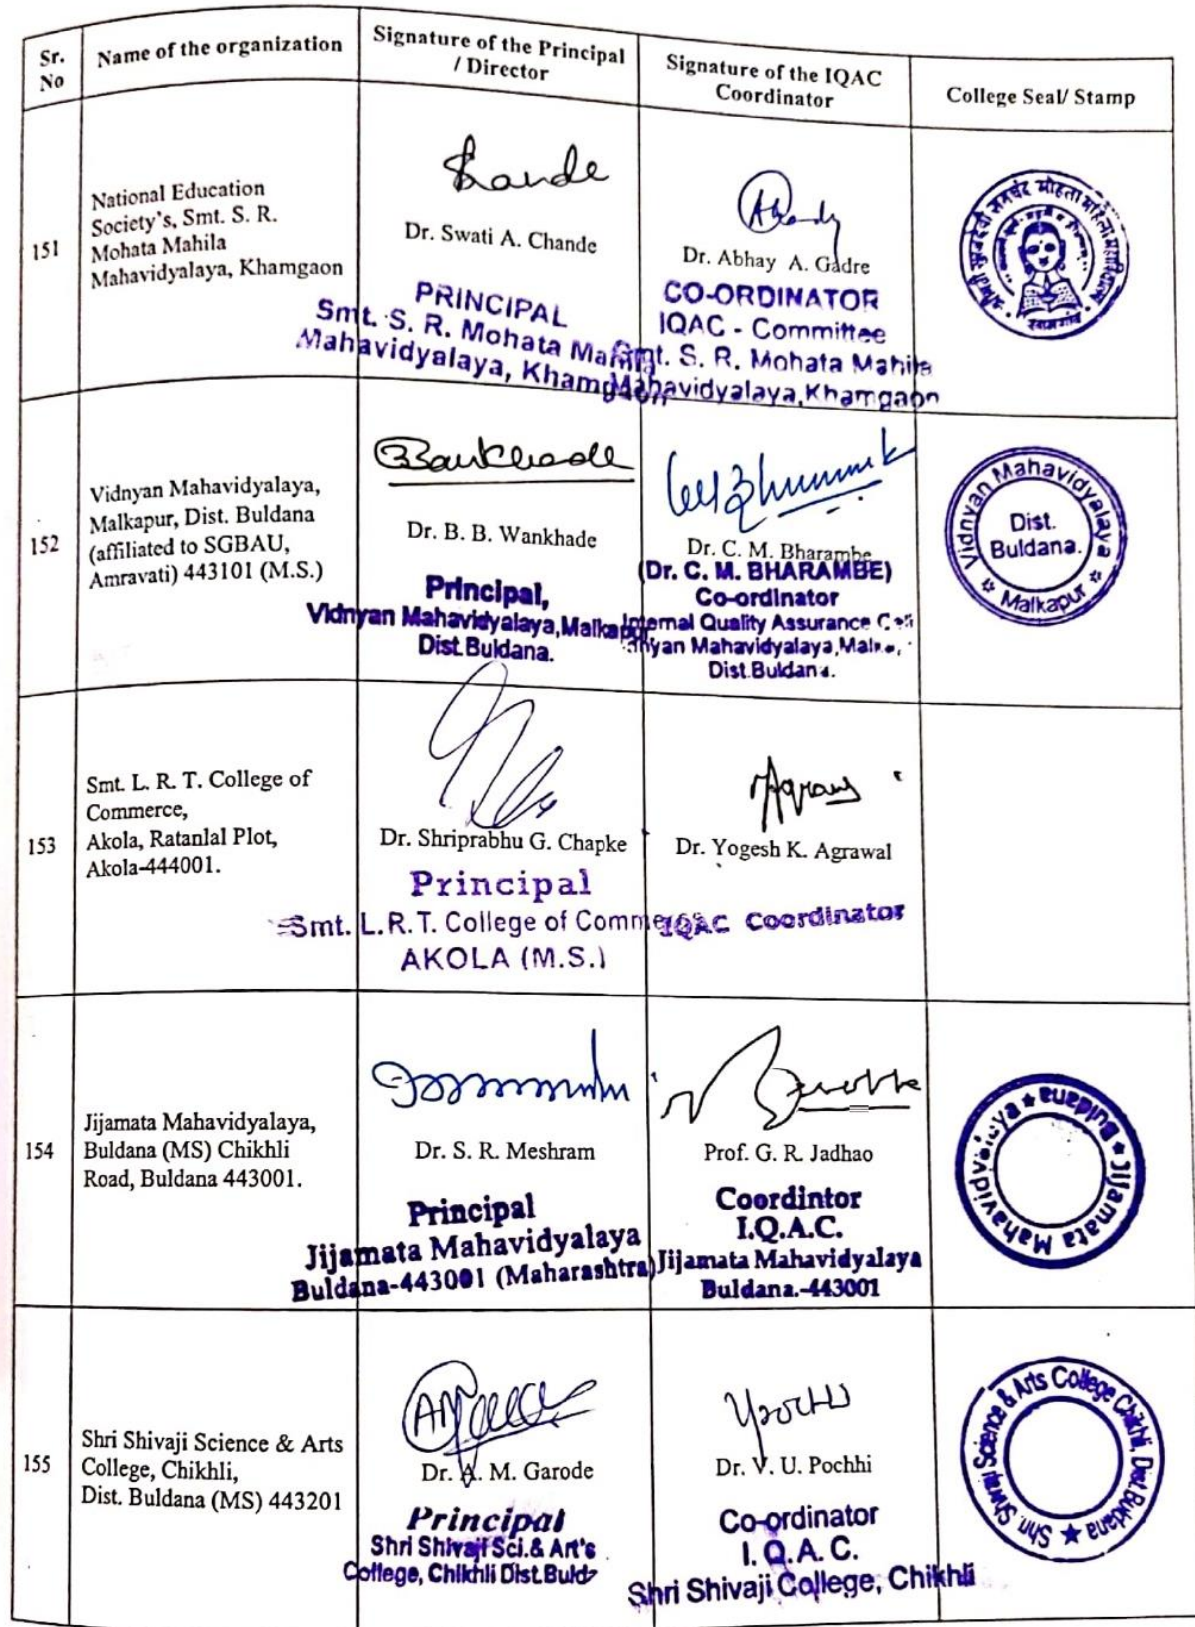 Sr.
No
Name of the organization
Signature of the Principal
/ Director
Signature of the IQAC
Coordinator
College Seal/ Stamp
151
National Education
Society's, Smt. S. R.
Mohata Mahila
Mahavidyalaya, Khamgaon
Chande
Dr. Swati A. Chande
PRINCIPAL
Smt. S. R. Mohata Mahila
Mahavidyalaya, Khamgaon
Dr. Abhay A. Gadre
CO-ORDINATOR
IQAC - Committee
Smt. S. R. Mohata Mahila
Mahavidyalaya, Khamgaon
खामगांव
152
Vidnyan Mahavidyalaya,
Malkapur, Dist. Buldana
(affiliated to SGBAU,
Amravati) 443101 (M.S.)
Dr. B. B. Wankhade
Principal,
Vidnyan Mahavidyalaya, Malkapur
Dist.Buldana.
Dr. C. M. Bharambe
(Dr. C. M. BHARAMBE)
Co-ordinator
Internal Quality Assurance Cell
Mahavidyalaya,
Dist.Buldana.
Vidnyan Mahavidyalaya
Dist.
Buldana.
Malkapur
153
Smt. L. R. T. College of
Commerce,
Akola, Ratanlal Plot,
Akola-444001.
Dr. Shriprabhu G. Chapke
Principal
Smt. L.R.T. College of Comme
AKOLA (M.S.)
Dr. Yogesh K. Agrawal
IQAC Coordinator
154
Jijamata Mahavidyalaya,
Buldana (MS) Chikhli
Road, Buldana 443001.
Dr. S. R. Meshram
Principal
Jijamata Mahavidyalaya
Buldana-443001 (Maharashtra)
Prof. G. R. Jadhao
Coordintor
I.Q.A.C.
Jijamata Mahavidyalaya
Buldana.-443001
Jijamata Mahavidyalaya ★ Buldana ★
155
Shri Shivaji Science & Arts
College, Chikhli,
Dist. Buldana (MS) 443201
Dr. A. M. Garode
Principal
Shri Shivaji Sci.& Art's
College, Chikhli Dist.Buld
Dr. V. U. Pochhi
Co-ordinator
I. Q. A. C.
Shri Shivaji College, Chikhli
Shri. Shivaji Science & Arts College Chikhli, Dist.Buldana ★